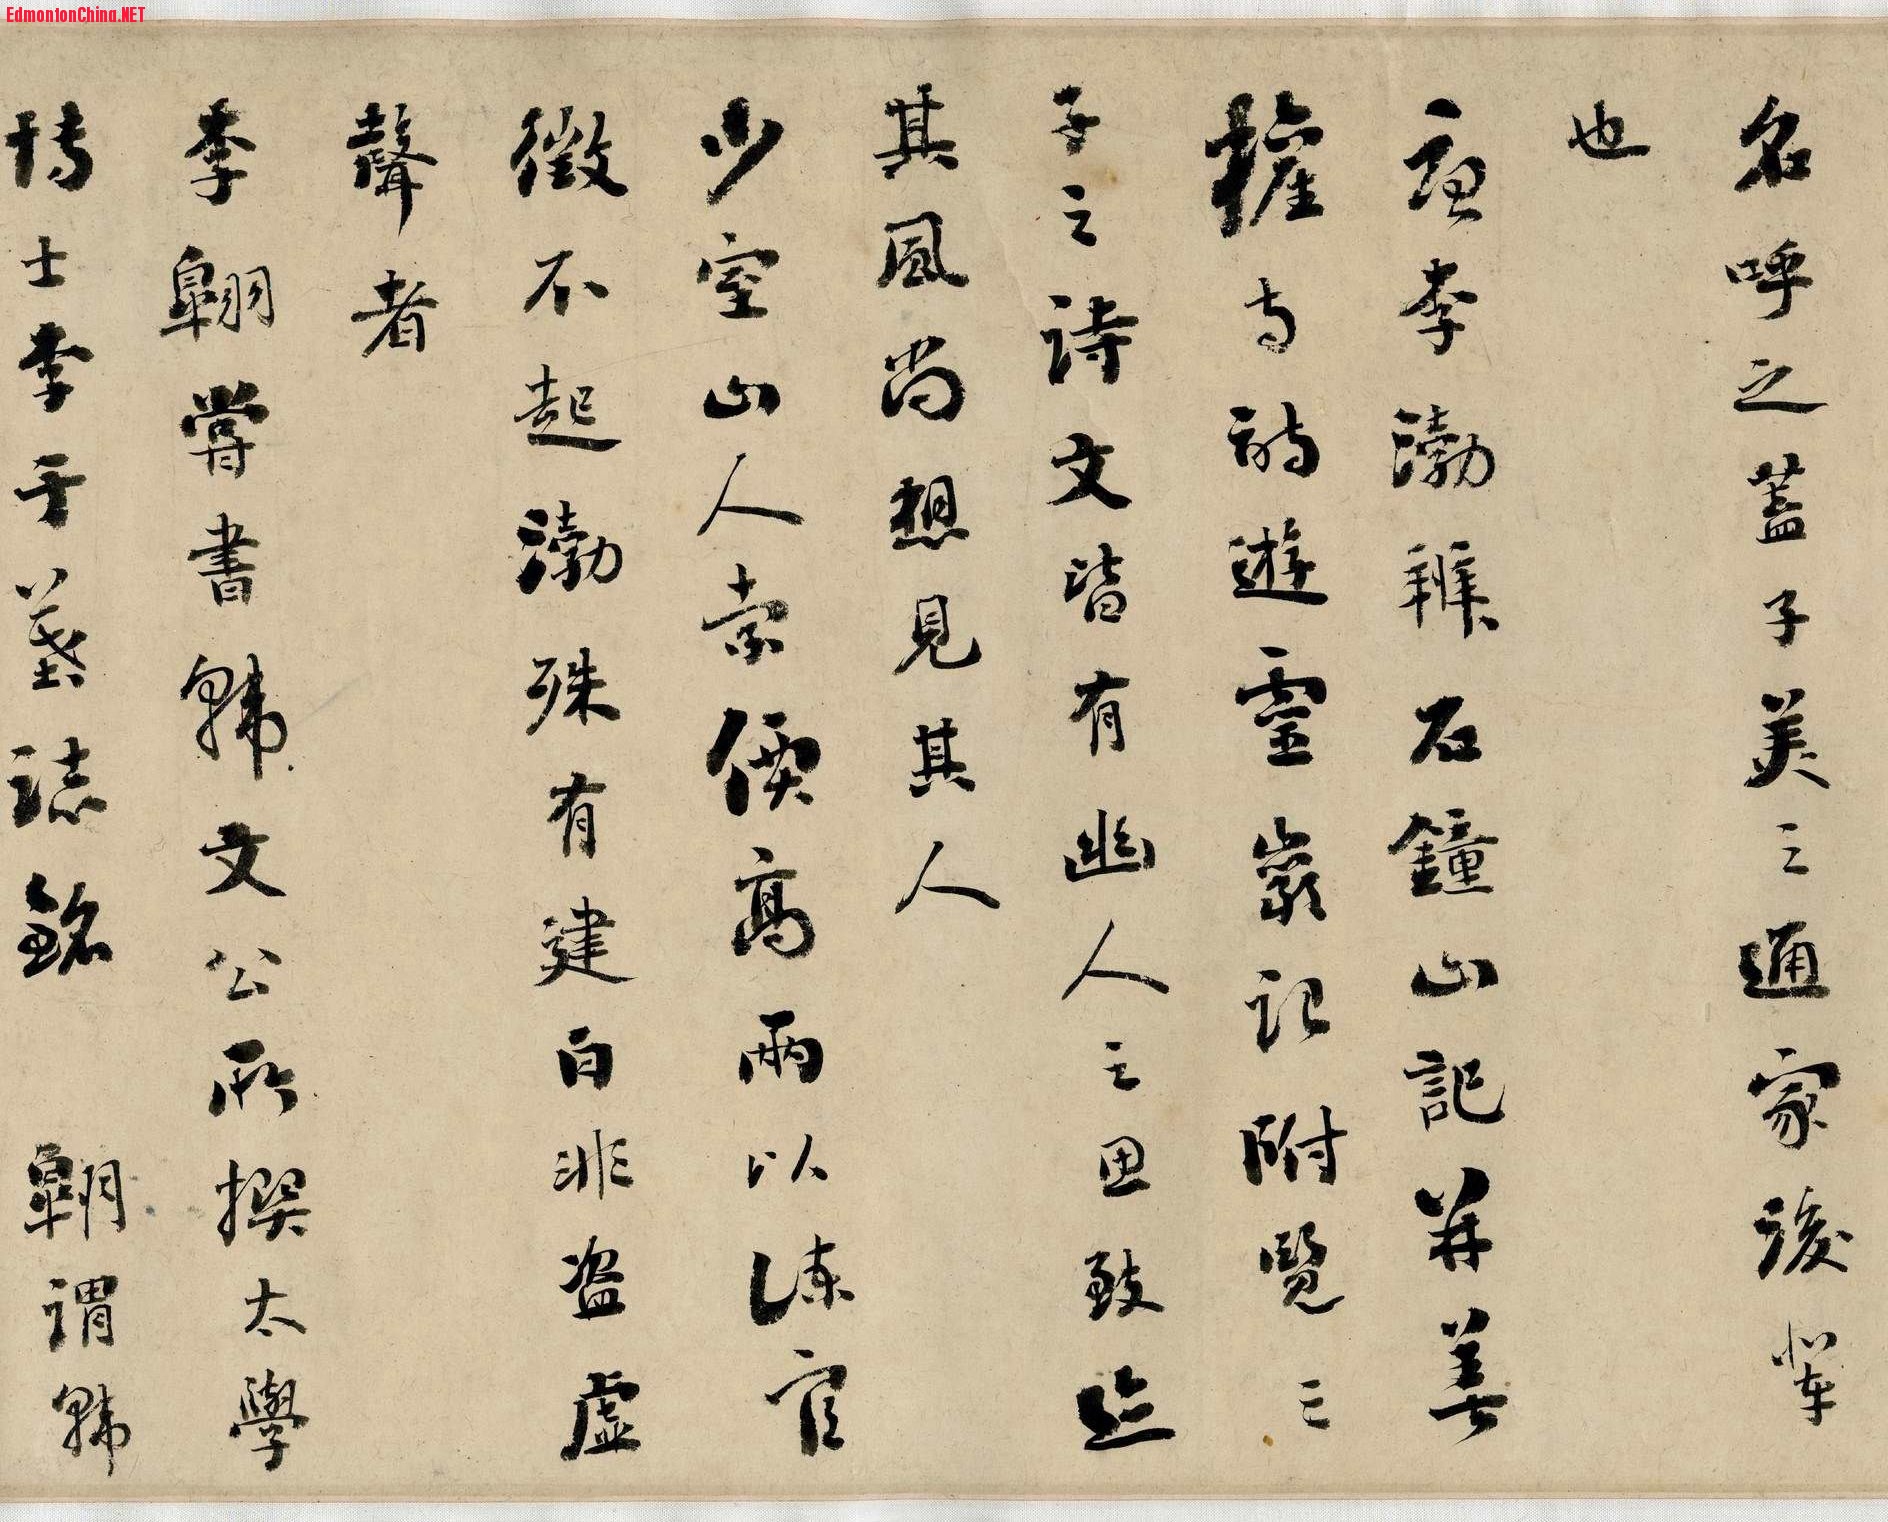 EdmontonChina.NET
名呼之蓋子美之通家後輩
也
李渤辨石鐘山記并善
權寺詩遊靈巖記附覽三
子之詩文皆有幽人之思致迹
其風尚想見其人
少室山人索價高兩以諫官
徵不起渤殊有建白非盗虛
聲者
李翱嘗書韓文公所撰太學
博士李于墓誌銘 翱謂韓